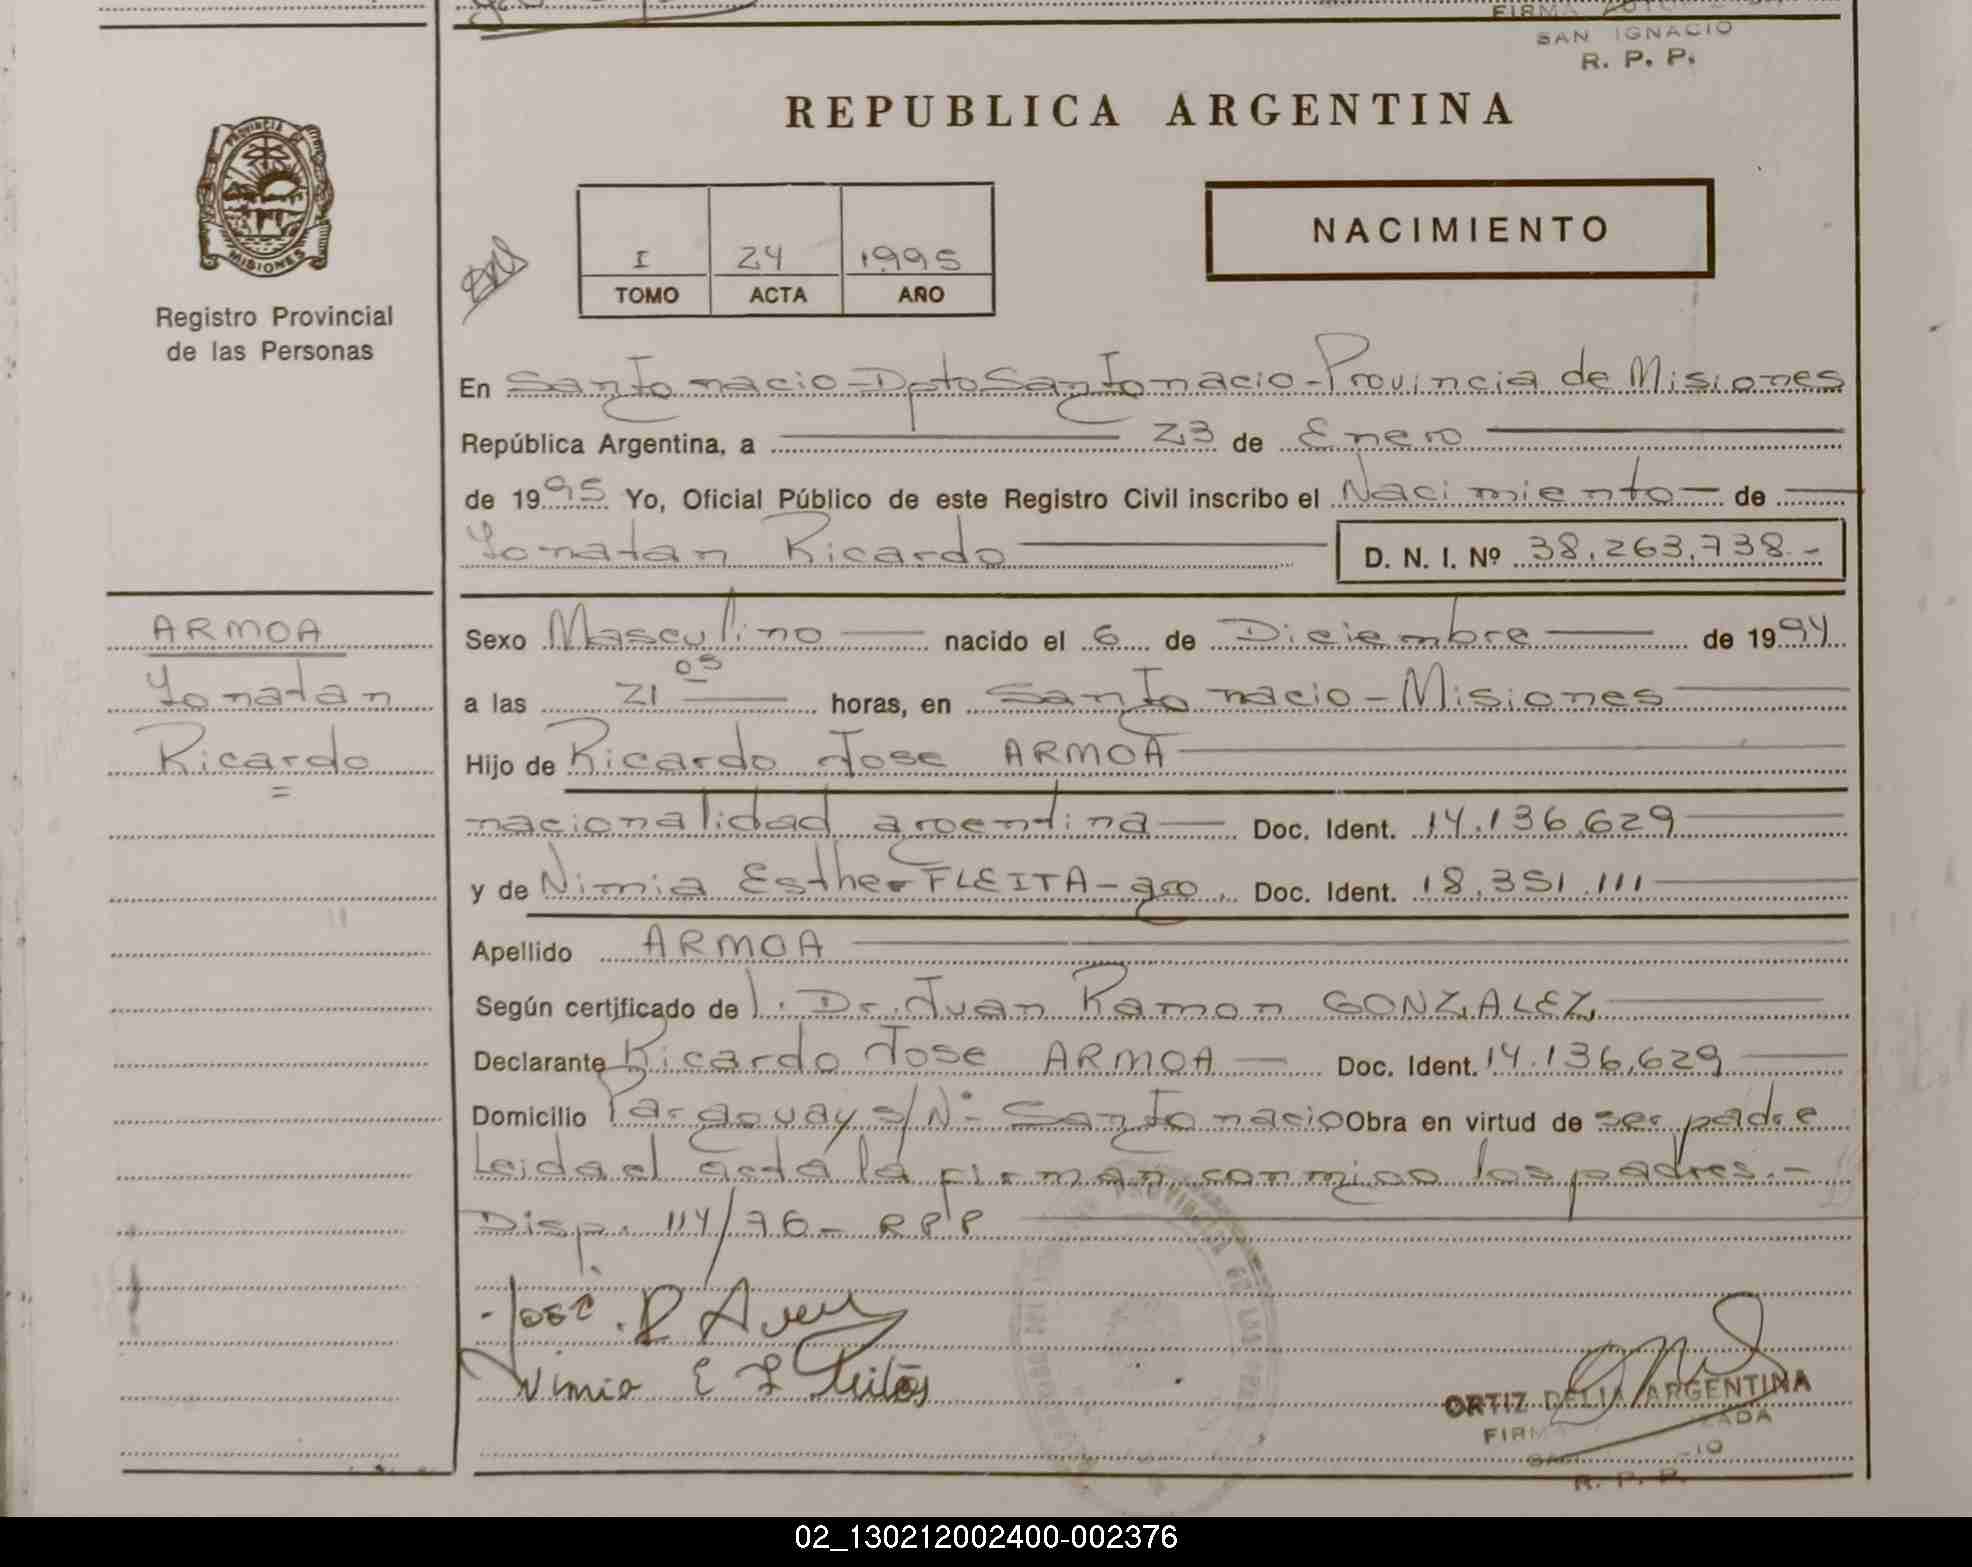 FIRMA
SAN IGNACIO
R. P. P.
REPUBLICA ARGENTINA
PROVINCIA DE
MISIONES
Registro Provincial
de las Personas
I 24 1995
TOMO ACTA AÑO
NACIMIENTO
En San Ignacio-Dpto San Ignacio-Provincia de Misiones
República Argentina, a 23 de Enero
de 1995 Yo, Oficial Público de este Registro Civil inscribo el Nacimiento - de
Yonatan Ricardo D. N. I. Nº 38.263.738.-
ARMOA
Yonatan
Ricardo
Sexo Masculino nacido el 6 de Diciembre de 1994
a las 21 05 horas, en San Ignacio - Misiones
Hijo de Ricardo Jose ARMOA
nacionalidad argentina Doc. Ident. 14.136.629
y de Nimia Esther FLEITA - arg. Doc. Ident. 18.351.111
Apellido ARMOA
Según certificado de l. Dr. Juan Ramon GONZALEZ
Declarante Ricardo Jose ARMOA Doc. Ident. 14.136.629
Domicilio Paraguay s/Nº San Ignacio Obra en virtud de ser padre
Leida el acta la firman conmigo los padres.-
Disp. 114/76- RPP
Jose R
Nimia E F Fleitas
ORTIZ DELIA ARGENTINA
R. P. P.
02_130212002400-002376